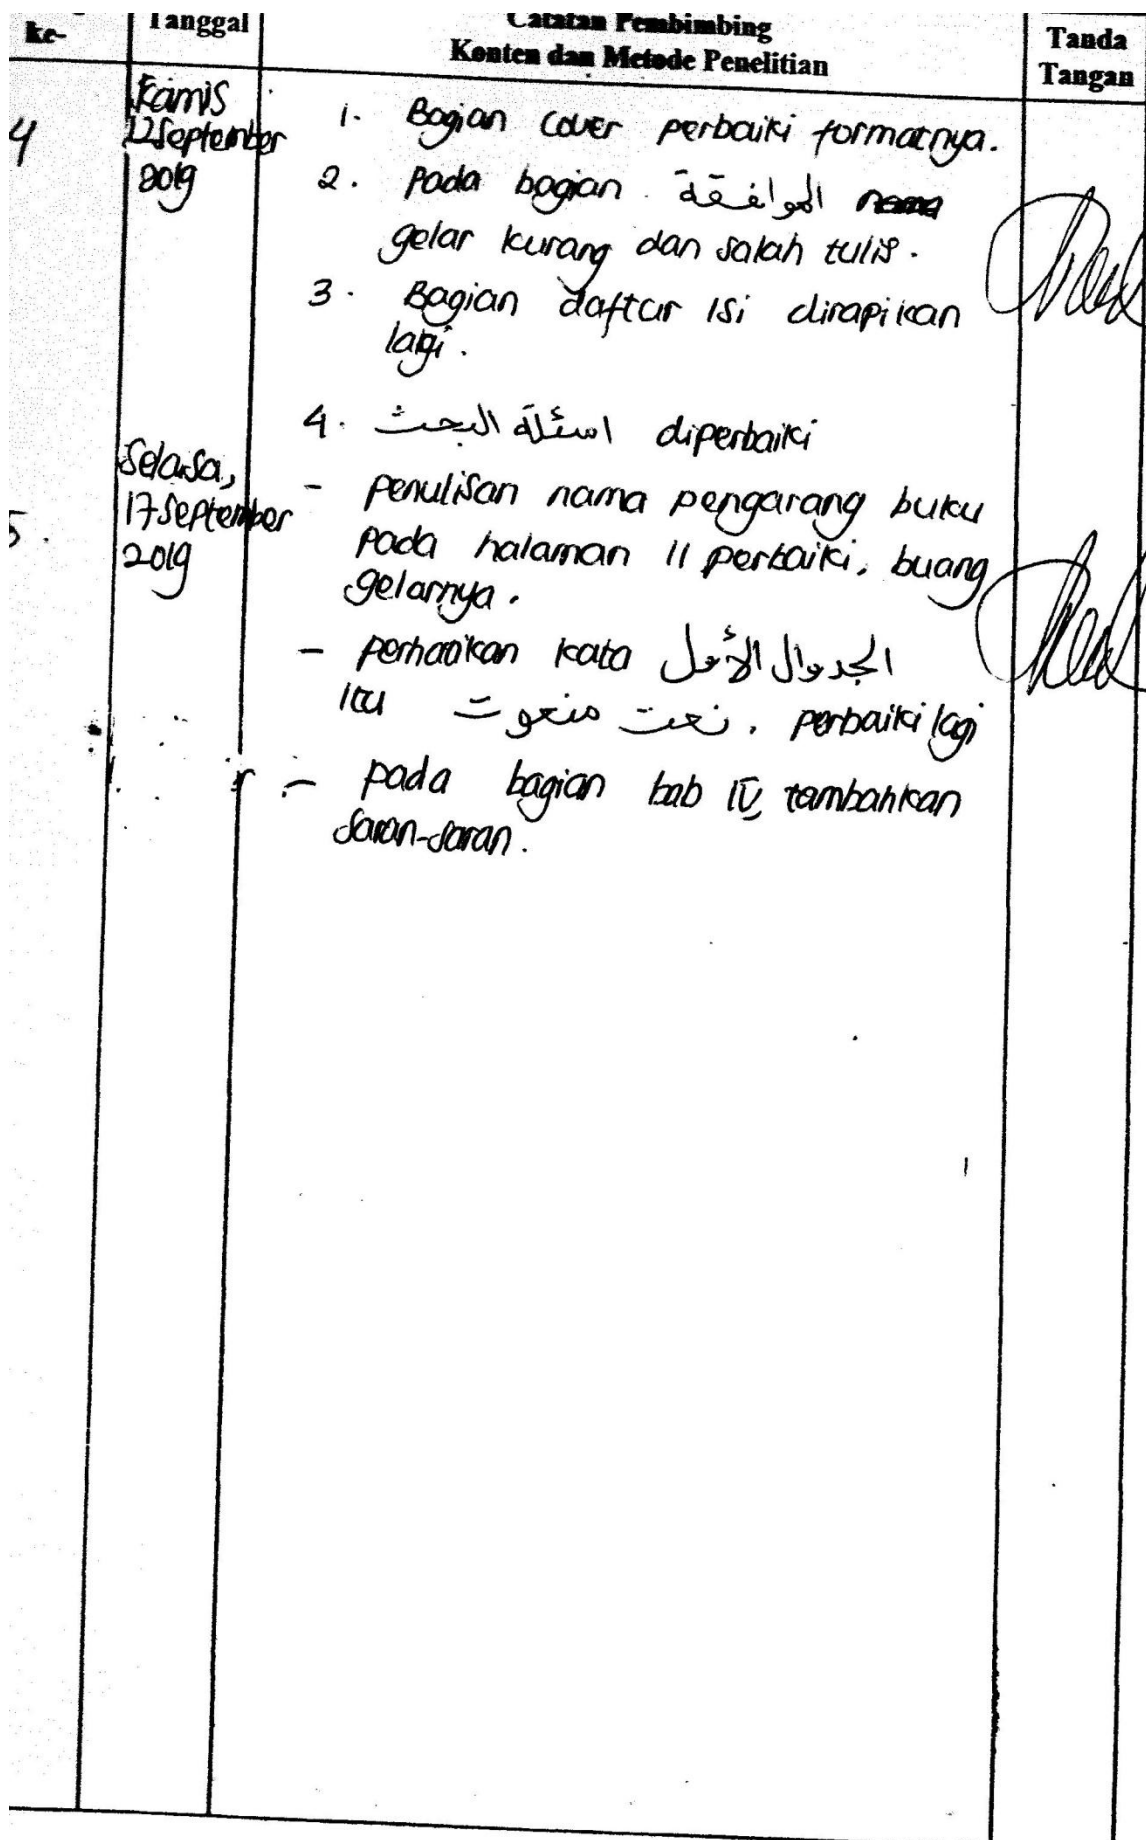 ke-
Tanggal
Catatan Pembimbing
Konten dan Metode Penelitian
Tanda
Tangan
4
Kamis
12 September
2019
1. Bagian cover perbaiki formatnya.
2. Pada bagian الموافقة
gelar kurang dan salah tulis.
3. Bagian daftar isi dirapikan
lagi.
4. اسئلة البحث diperbaiki
5.
Selasa,
17 September
2019
- penulisan nama pengarang buku
pada halaman 11 perbaiki, buang
gelarnya.
- perhatikan kata الجدوال الأول
itu نعت منعوت. perbaiki lagi
- pada bagian bab IV, tambahkan
saran-saran.